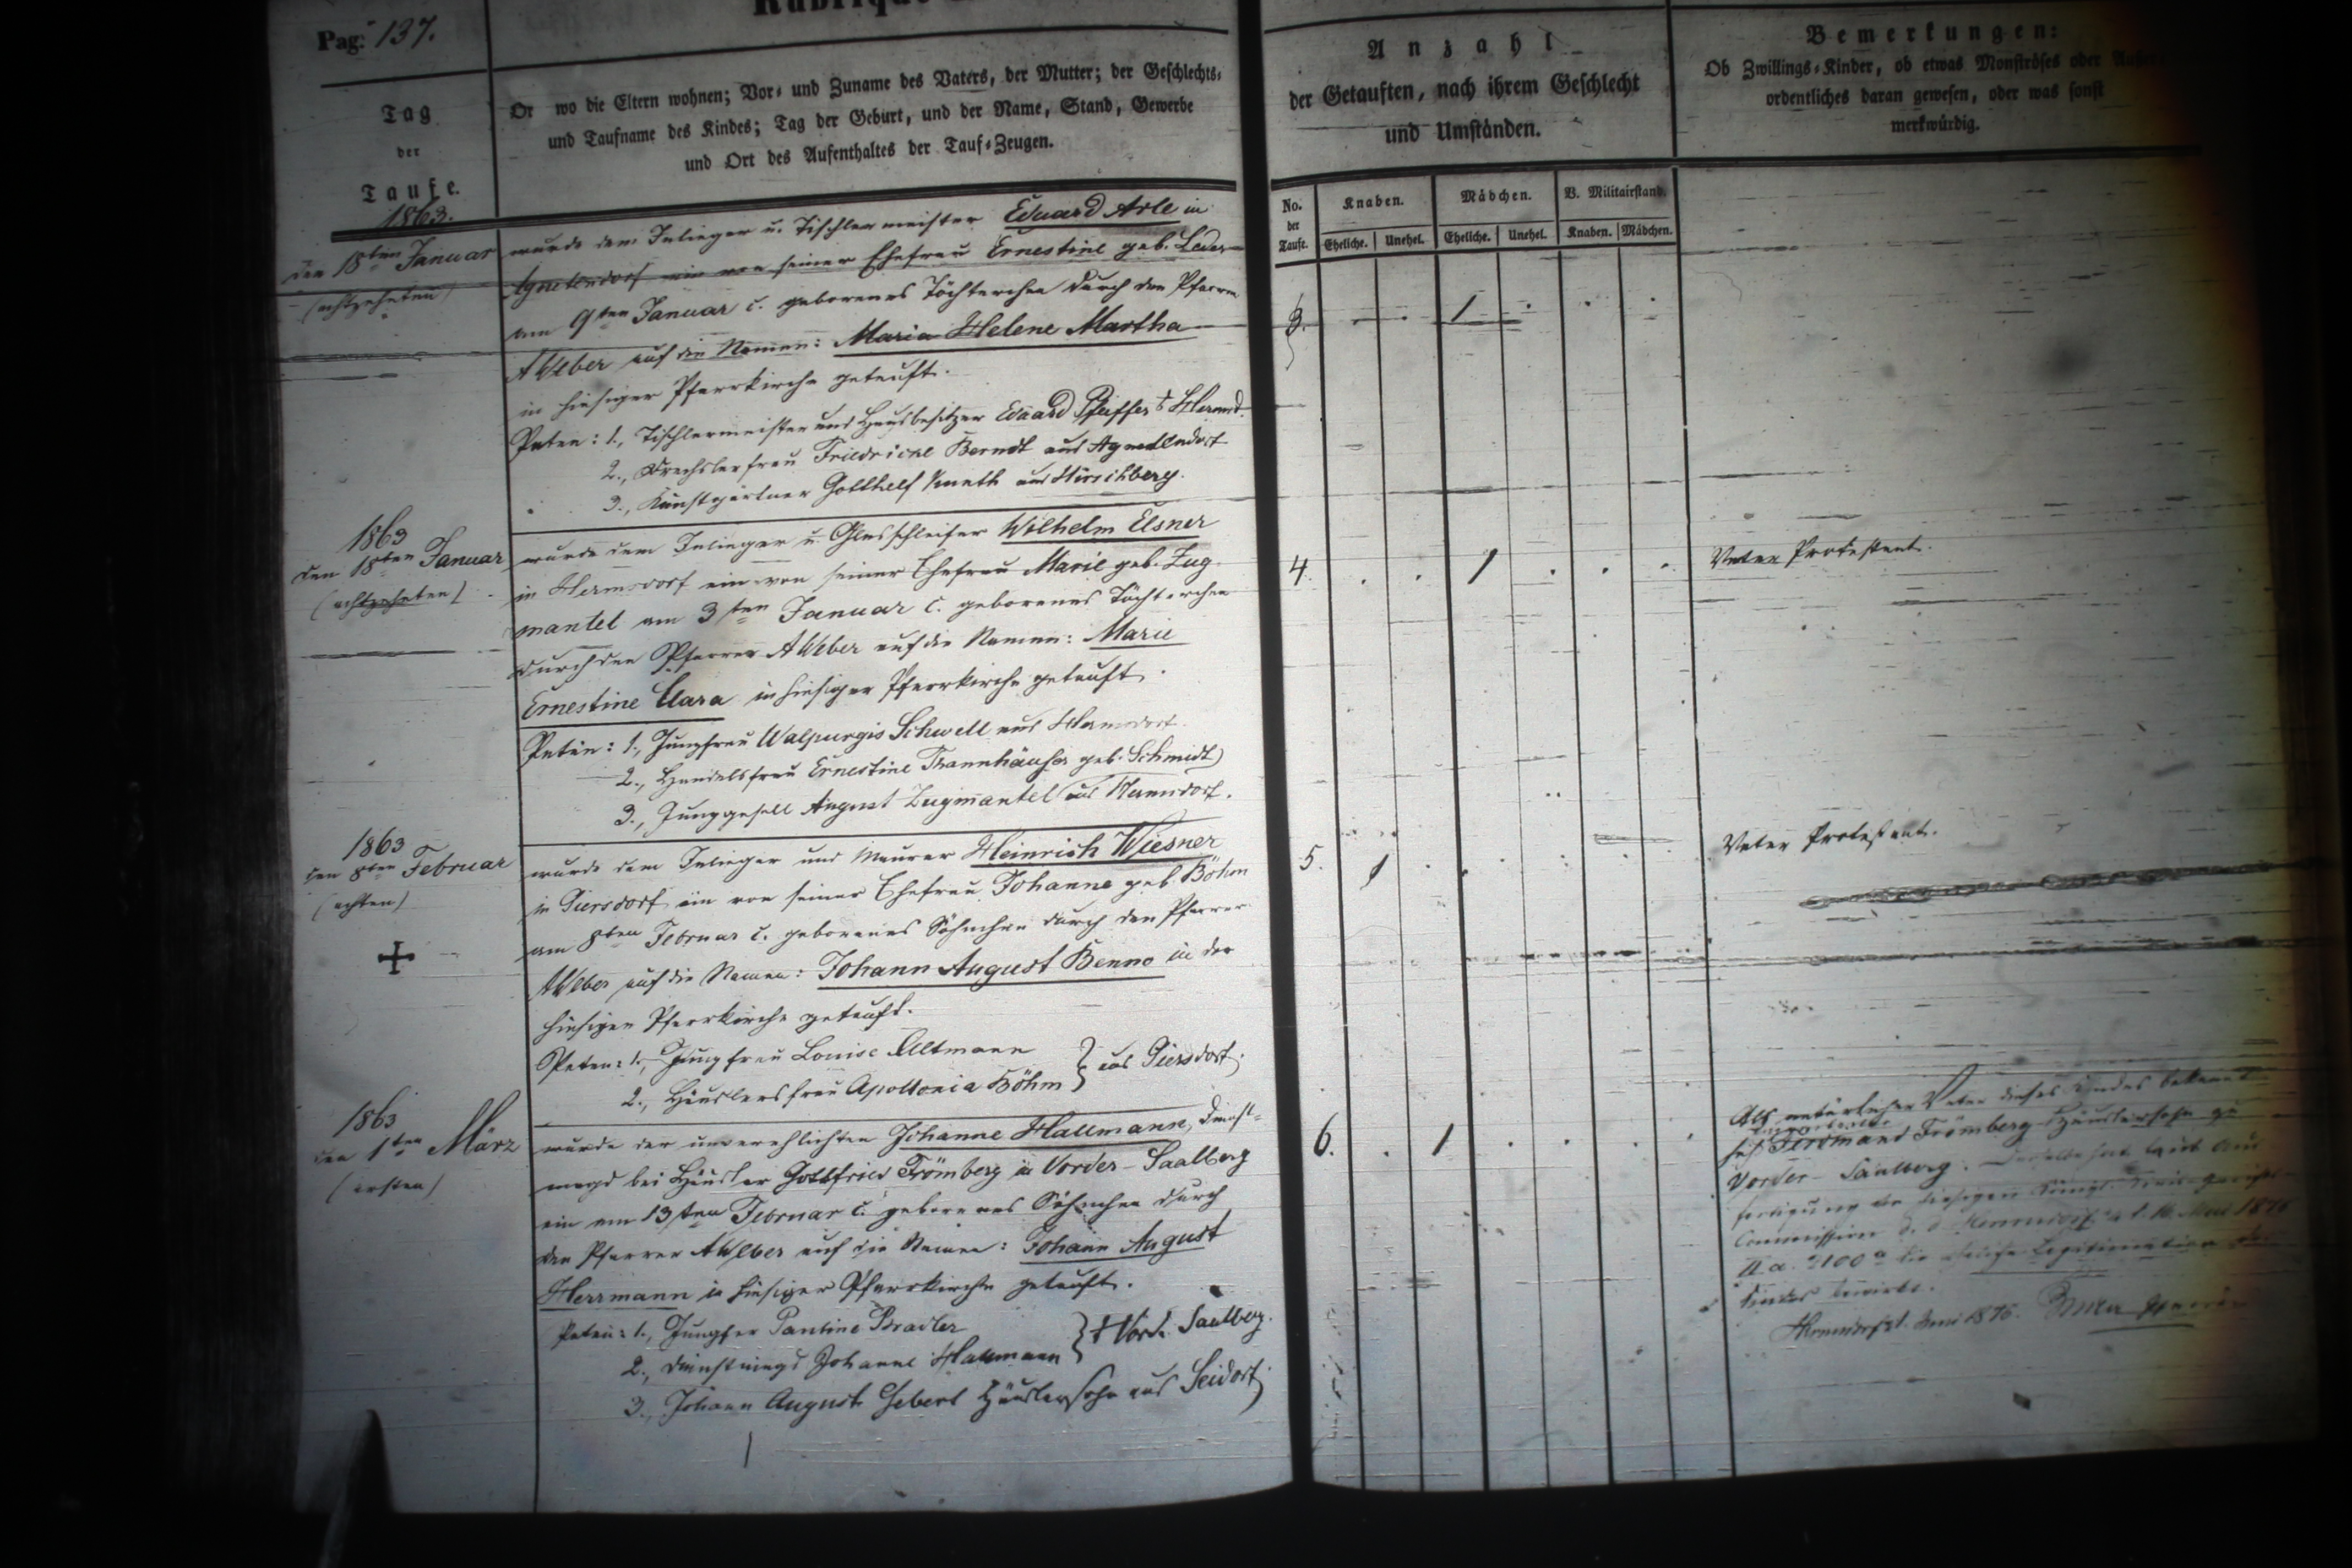 Pag: 137.
Tag
der
Taufe.
Or wo die Eltern wohnen; Vor- und Zuname des Vaters, der Mutter; der Geschlechts-
und Taufname des Kindes; Tag der Geburt, und der Name, Stand, Gewerbe
und Ort des Aufenthaltes der Tauf-Zeugen.
Anzahl
der Getauften, nach ihrem Geschlecht
und Umständen.
Bemerkungen:
Ob Zwillings-Kinder, ob etwas Monströses oder
ordentliches daran gewesen, oder was sonst
merkwürdig.
No.
der
Taufe.
Knaben.
Mädchen.
V. Militairstand.
Eheliche. Unehel. Eheliche. Unehel. Knaben. Mädchen.
1863.
den 18ten Januar
(achtzehnten)
wurde dem Inlieger u. Tischlermeister Eduard Arle in
Agnetendorf ein von seiner Ehefrau Ernestine geb. Leder
am 9ten Januar c. geborenes Töchterchen durch den Pfarrer
A Weber auf die Namen: Maria Helene Martha
in hiesiger Pfarrkirche getauft.
Paten: 1., Tischlermeister und Hausbesitzer Eduard Pfeiffer
2., Drechslerfrau Friedricke Berndt aus Agnetendorf
3., Kunstgärtner Gotthelf aus Hirschberg.
3. 1
1863
den 18ten Januar
(achtzehnten)
wurde dem Inlieger u. Glasschleifer Wilhelm Elsner
in Hermsdorf ein von seiner Ehefrau Marie geb. Zug
mantel am 3ten Januar c. geborenes Töchterchen
durch den Pfarrer A Weber auf die Namen: Marie
Ernestine Clara in hiesiger Pfarrkirche getauft.
Paten: 1., Jungfrau Walpurgis Schwell aus Hermsdorf
2., Handelsfrau Ernestine Thannhäuser geb. Schmidt
3., Junggesell August Zugmantel aus Hermsdorf.
4. 1
Vater Protestant.
1863
den 8ten Februar
(achten)
wurde dem Inlieger und Maurer Heinrich Wiesner
in Giersdorf ein von seiner Ehefrau Johanne geb. Böhm
am 8ten Februar c. geborenes Söhnchen durch den Pfarrer
A Weber auf die Namen: Johann August Benno in der
hiesigen Pfarrkirche getauft.
Paten: 1., Jungfrau Louise Altmann
2., Häuslersfrau Apollonia Böhm } aus Giersdorf.
5. 1
Vater Protestant.
1863
den 1ten März
(ersten)
wurde der unverehlichten Johanne Hallmann, Dienst-
magd bei Häusler Gottfried Frömberg in Vorder-Saalberg
ein am 13ten Februar c. geborenes Söhnchen durch
den Pfarrer A Weber auf die Namen: Johann August
Herrmann in hiesiger Pfarrkirche getauft.
Paten: 1., Jungfer Pauline Bradler
2., Dienstmagd Johanne Hallmann } Vord. Saalberg.
3., Johann August Gebert Häuslersohn aus Seidorf
6. 1
Als natürlicher Vater dieses Kindes bekannt
sich Ferdinand Frömberg Häuslersohn zu
Vorder-Saalberg. Derselbe hat laut Aus
fertigung der hiesigen Königl. Kreis-Gerichts-
Commission d. d. Hermsdorf Mai 1876
II a. 2100 die Legitimation des
Kindes bewirkt.
Hermsdorf Juni 1876.